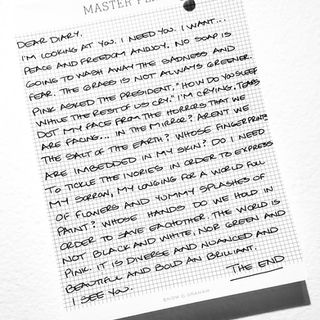 MASTER
DEAR DIARY,
I'M LOOKING AT YOU. I NEED YOU. I WANT...
PEACE AND FREEDOM AND JOY. NO SOAP IS
GOING TO WASH AWAY THE SADNESS AND
FEAR. THE GRASS IS NOT ALWAYS GREENER.
PINK ASKED THE PRESIDENT, "HOW DO YOU SLEEP
WHILE THE REST OF US CRY." I'M CRYING, TEARS
DOT MY FACE FROM THE HORRORS THAT WE
ARE FACING... IN THE MIRROR? AREN'T WE
THE SALT OF THE EARTH? WHOSE FINGERPRINTS
ARE IMBEDDED IN MY SKIN? DO I NEED
TO TICKLE THE IVORIES IN ORDER TO EXPRESS
MY SORROW, MY LONGING FOR A WORLD FULL
OF FLOWERS AND YUMMY SPLASHES OF
PAINT? WHOSE HANDS DO WE HOLD IN
ORDER TO SAVE EACHOTHER. THE WORLD IS
NOT BLACK AND WHITE, NOR GREEN AND
PINK. IT IS DIVERSE AND NUANCED AND
BEAUTIFUL AND BOLD AN BRILLIANT.
I SEE YOU.
THE END
SNOW & GRAHAM